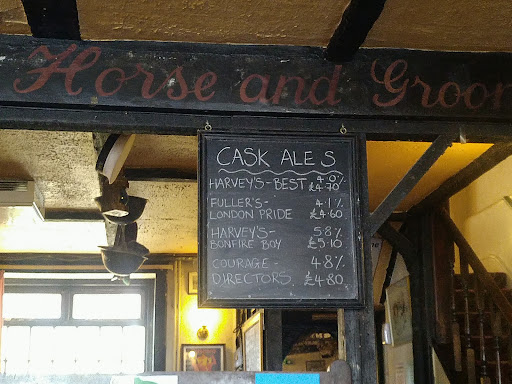 Horse and Groom
CASK ALES
HARVEY'S - BEST 4.0%
£4.70
FULLER'S - 4.1%
LONDON PRIDE £4.60
HARVEY'S - 5.8%
BONFIRE BOY £5.10
COURAGE - 4.8%
DIRECTORS. £4.80